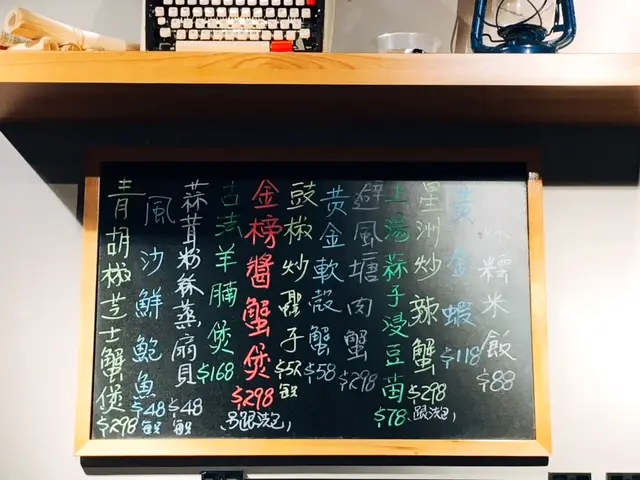 味糯米飯 $88
黄金蝦 $118
星洲炒辣蟹 $298
上湯蒜子浸豆苗 $78
避風塘肉蟹 $298
黄金軟殼蟹 $58
豉椒炒蟶子
金榜醬蟹煲 $298
古法羊腩煲 $168
蒜茸粉絲蒸扇貝 $48
風沙鮮鮑魚 $48
青胡椒芝士蟹煲 $298